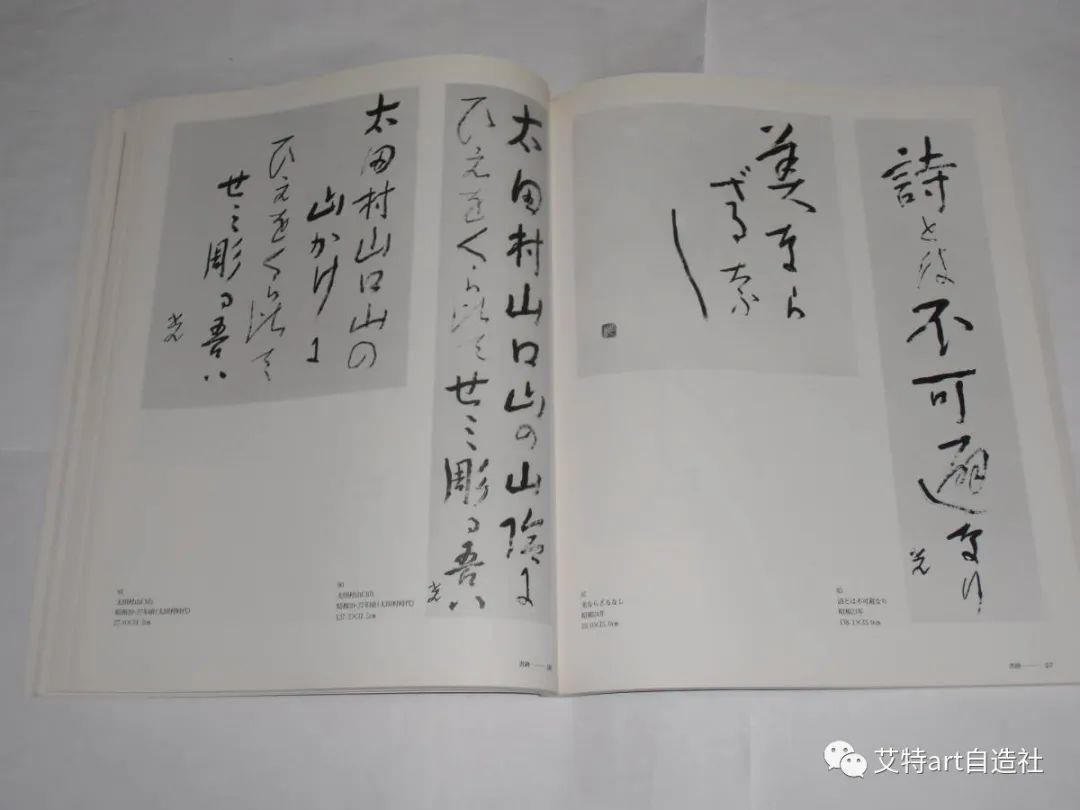 詩とは不可避なり
光
美なら
ざる奈
し
詩とは不可避なり
昭和23年
138.1×33.0cm
美ならざるなし
書跡 — 57
太田村山口山の山陰に
ひえをくらひてせミ彫る吾ハ
光
太田村山口山の
山かけに
ひえをくらひて
せミ彫る吾ハ
光
90
太田村山口山
昭和20-27年頃(太田村時代)
太田村山口山
昭和20-27年頃(太田村時代)
書跡
艾特art自造社